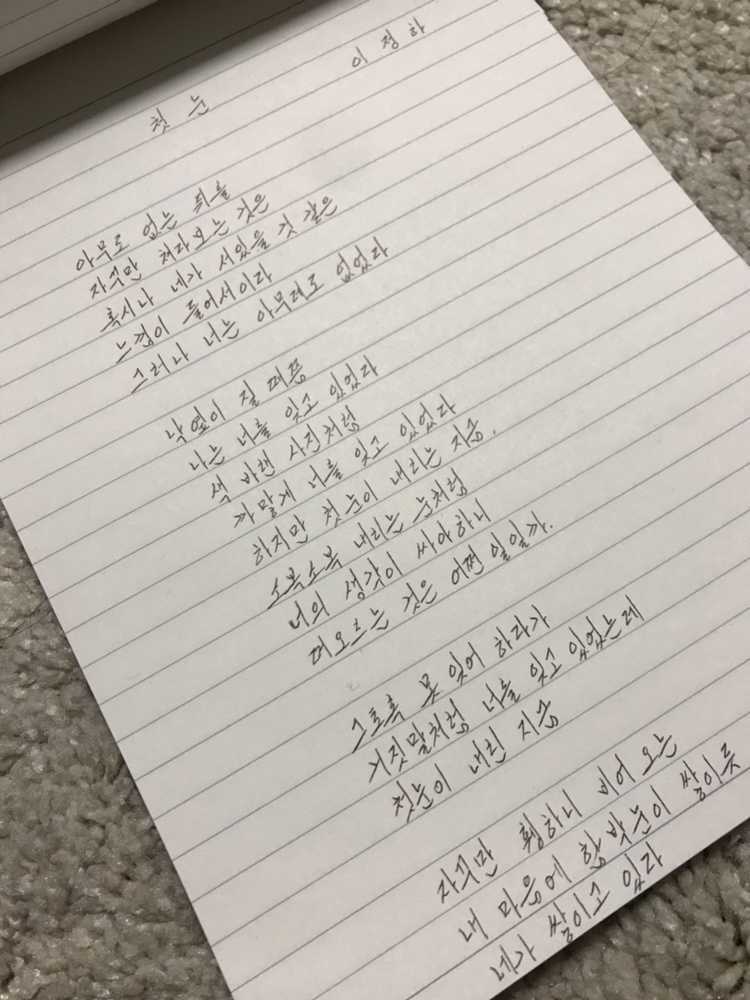 첫 눈
이 정 하
아무도 없는 뒤를
자꾸만 쳐다보는 것은
혹시나 네가 서있을 것 같은
느낌이 들어서이다
그러나 너는 아무데도 없었다
낙엽이 질 때쯤
나는 너를 잊고 있었다
색 바랜 사진처럼
까맣게 너를 잊고 있었다
하지만 첫눈이 내리는 지금,
소복소복 내리는 눈처럼
너의 생각이 싸아하니
떠오르는 것은 어쩐 일일까.
그토록 못 잊어 하다가
거짓말처럼 너를 잊고 있었는데
첫눈이 내린 지금
자꾸만 휑하니 비어 오는
내 마음에 함박눈이 쌓이듯
네가 쌓이고 있다